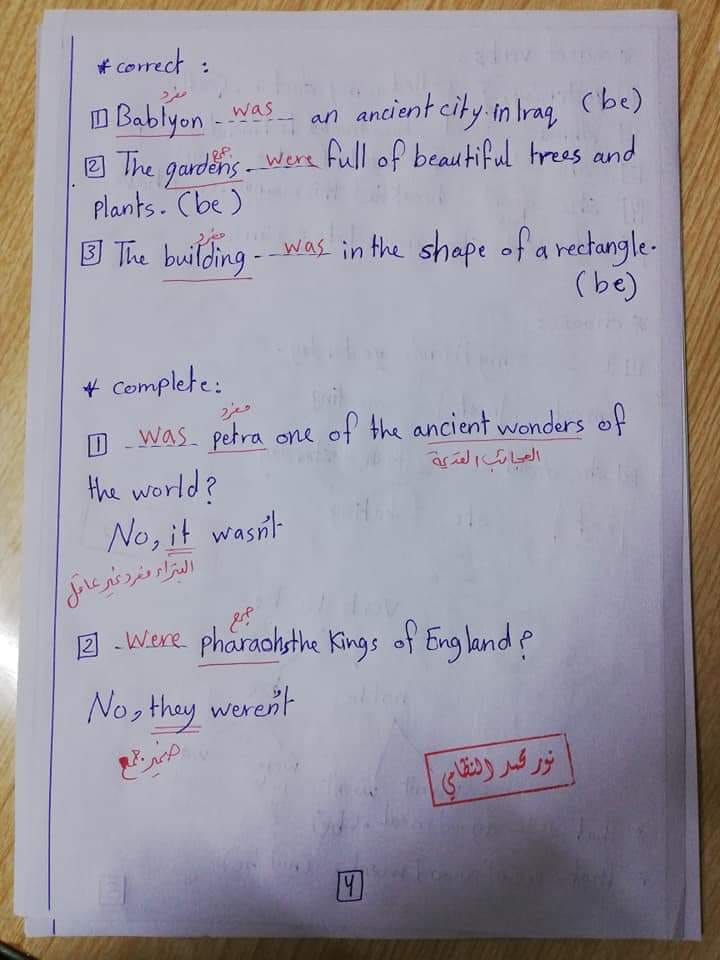 * correct :
مفرد
1 Bablyon was an ancient city in Iraq (be)
جمع
2 The gardens were full of beautiful trees and
plants. (be)
مفرد
3 The building was in the shape of a rectangle.
(be)
* complete:
مفرد
1 was petra one of the ancient wonders of
العجائب القديمة
the world?
No, it wasn't
البتراء مفرد غير عاقل
جمع
2 Were pharaohs the Kings of England?
No, they weren't
ضمير جمع
نور محمد النظامي
4